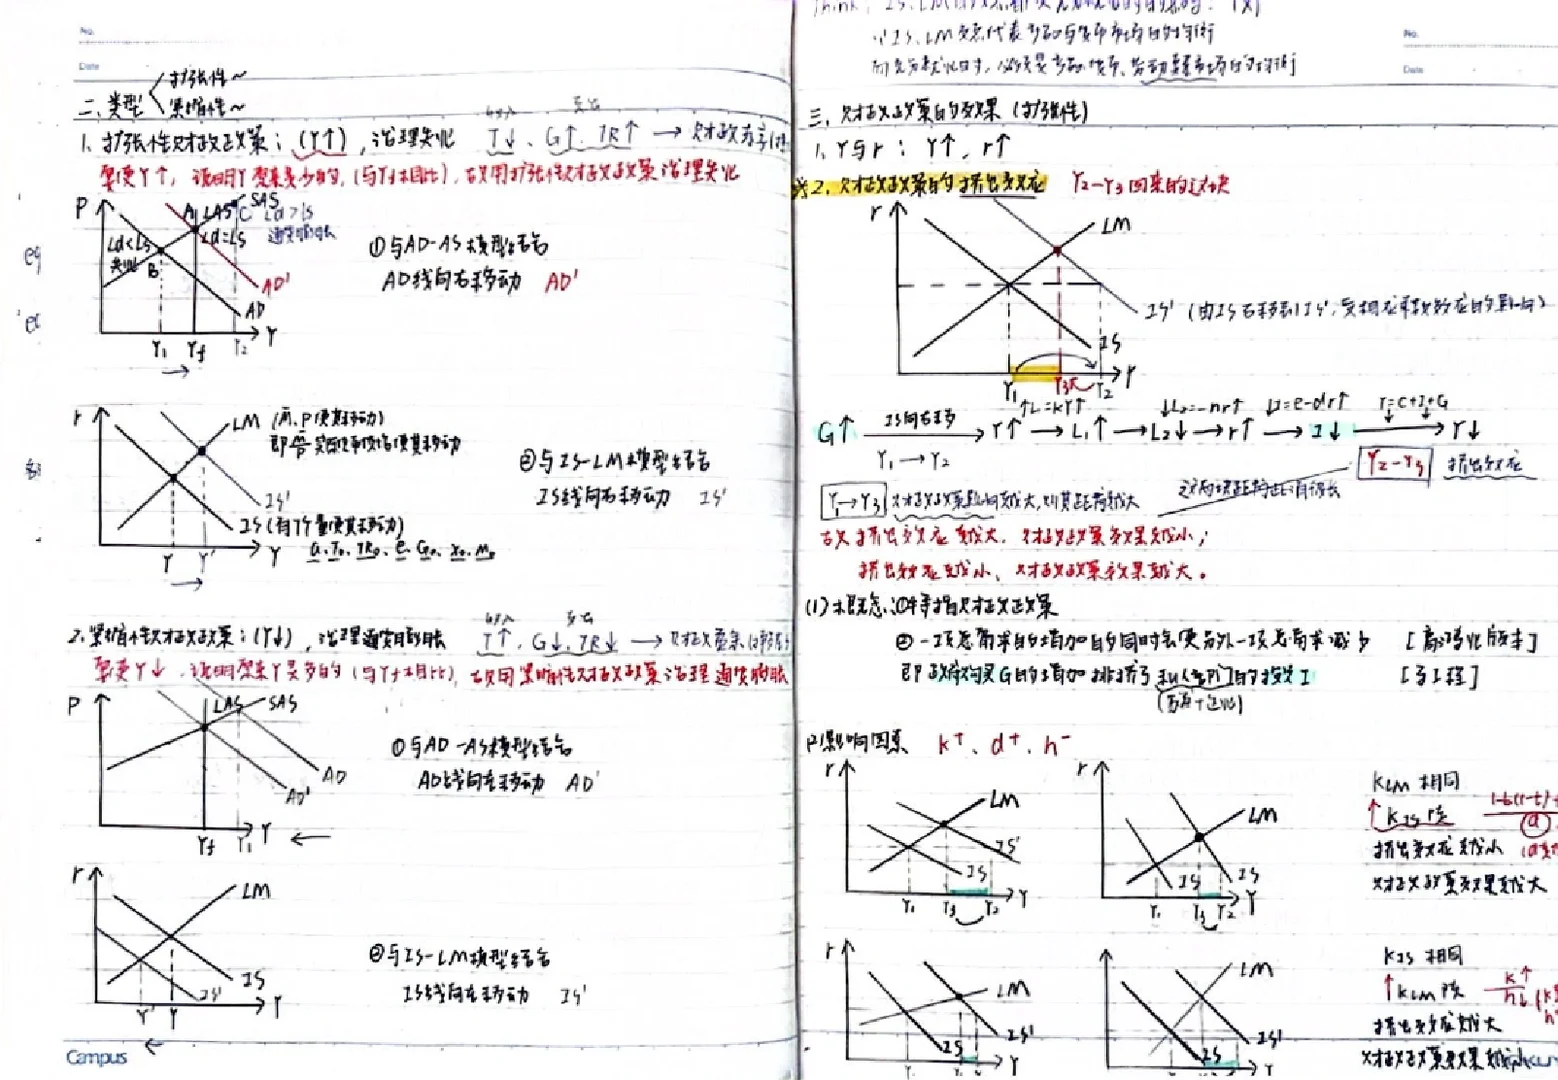 No.
Date
二、类型
扩张性~
紧缩性~
1. 扩张性财政政策：(Y↑)，治理失业 T↓、G↑、TR↑ → 财政赤字
收入
支出
要使Y↑，说明Y原来是少的，(与Yf相比)，故用扩张性财政政策治理失业
P
A
LAS
SAS
C
Ld>Ls
通货膨胀
Ld<Ls
失业
B
Ld=Ls
AD'
AD
Y₁ Yf Y₂
Y
①与AD-AS模型结合
AD线向右移动 AD'
r
LM (M、P使其移动)
IS'
IS (有7个量使其移动)
a、T₀、TR₀、e、G₀、x₀、m₀
Y Y'
Y
②与IS-LM模型结合
IS线向右移动 IS'
2. 紧缩性财政政策：(Y↓)，治理通货膨胀 T↑、G↓、TR↓ → 财政盈余
收入
支出
要使Y↓，说明原来Y是多的(与Yf相比)，故用紧缩性财政政策治理通货膨胀
P
LAS
SAS
AD
AD'
Yf Y₁ Y
①与AD-AS模型结合
AD线向左移动 AD'
r
LM
IS
IS'
Y' Y
Y
②与IS-LM模型结合
IS线向左移动 IS'
Campus
∵IS、LM交点代表产品与货币市场的均衡
No.
Date
三、财政政策的效果(扩张性)
1. Y与r：Y↑、r↑
※2. 财政政策的挤出效应 Y₂-Y₃回来的这块
r
LM
IS' (由IS右移到IS'，受相应乘数效应的影响)
IS
Y₁ Y₃ Y₂ Y
G↑ IS向右移 Y₁→Y₂ Y↑ → L₁↑ → L₂↓ → r↑ → I↓ → Y↓
↑L₁=kY↑
↓L₂=-hr↑
↓I=e-dr↑
Y=C+I+G
Y₂-Y₃ 挤出效应
Y₁→Y₃ 财政政策影响越大，则其距离越大
故挤出效应越大，财政政策效果越小；
挤出效应越小，财政政策效果越大。
(1)概念：①特指财政政策
②一项总需求的增加的同时会使另外一项总需求减少 [高鸿业版本]
即政府购买G的增加排挤了私人部门的投资I
(2)影响因素 k⁺、d⁺、h⁻
r
LM
IS'
IS
Y₁ Y₃ Y₂ Y
r
LM
IS
IS
Y₁ Y₃ Y₂ Y
K_LM 相同
↑K_IS 陡
挤出效应越小
财政政策效果越大
r
LM
IS'
IS
Y
LM
IS'
IS
Y
K_IS 相同
↑K_LM 陡
k↑
h↓
挤出效应越大
财政政策效果越小